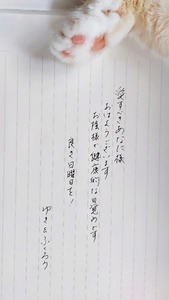 愛すべきあなた様
おはようございます
お陰様で健康的な目覚めです
良き日曜日を!
ゆきとふくろう